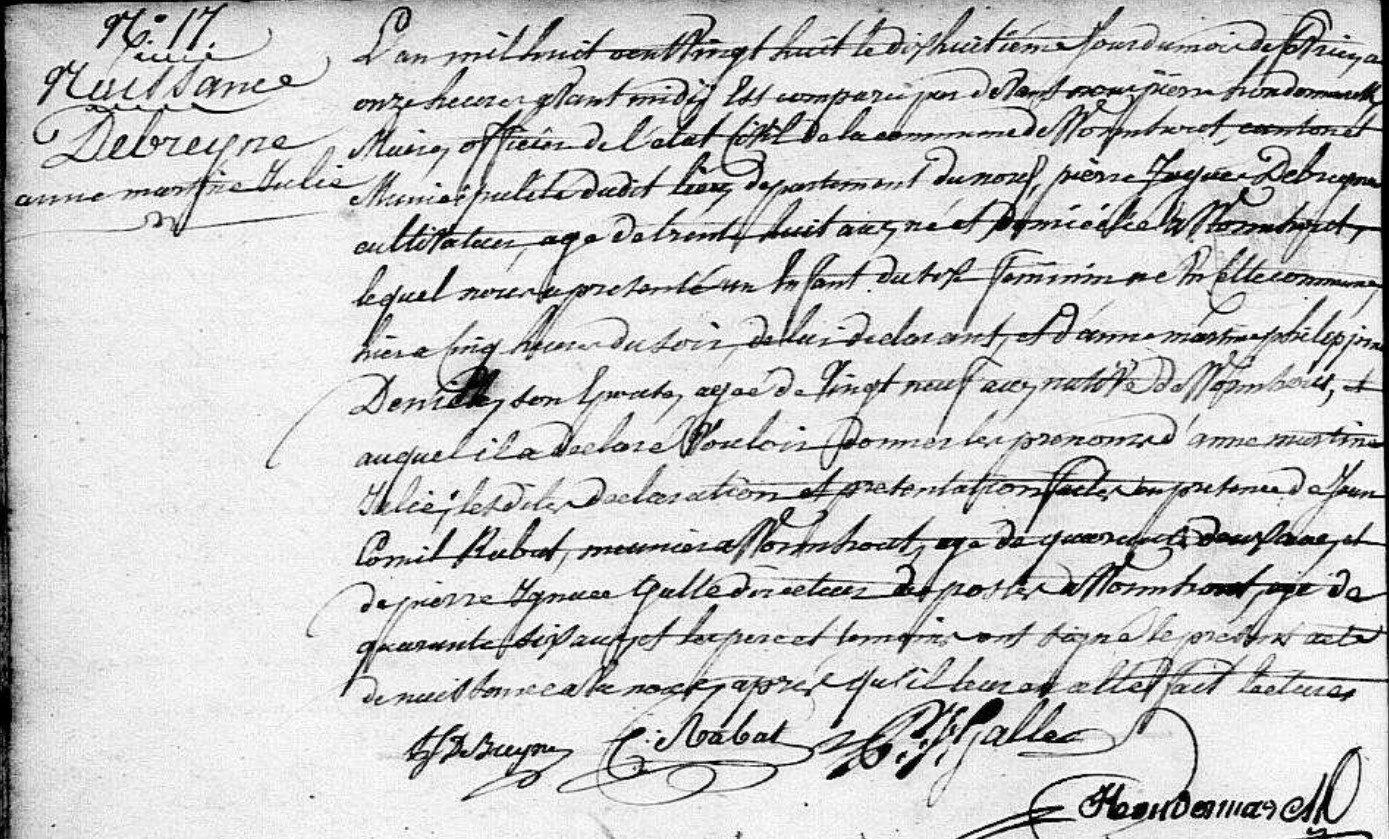 N.° 17.
Naissance
Debreyne
anne martine Julie
L'an mil huit cent vingt huit le dix huitième jour du mois de fevrier a
onze heures avant midi, Est comparu par devant nous pierre
Maire, officier de l'etat Civil de la commune de Wormhout, canton et
Municipalité dudit lieu, departement du nord, pierre Jaques Debreyne
cultivateur, age de trente huit ans, né et domicilié a Wormhout,
lequel nous a presenté un Enfant du sex feminin né En Cette commune,
hier a cinq heures du soir, de lui declarant, et d'anne martine philippine
son Epouse, agée de vingt neuf ans, native de Wormhout, et
auquel il a declaré Vouloir donner les prenoms d'anne martine
Julie; lesdites declaration et presentation faites en presence de Jean
Cornil Rabat, meunier a Wormhout, age de quarante deux ans, et
de pierre Ignace Galle directeur des postes a Wormhout, age de
quarante six ans, et les pere et temoins ont signé le present acte
de naissance avec nous, après qu'il leur en a été fait lecture,
PJ DeBreyne C: Rabat P. J. Galle